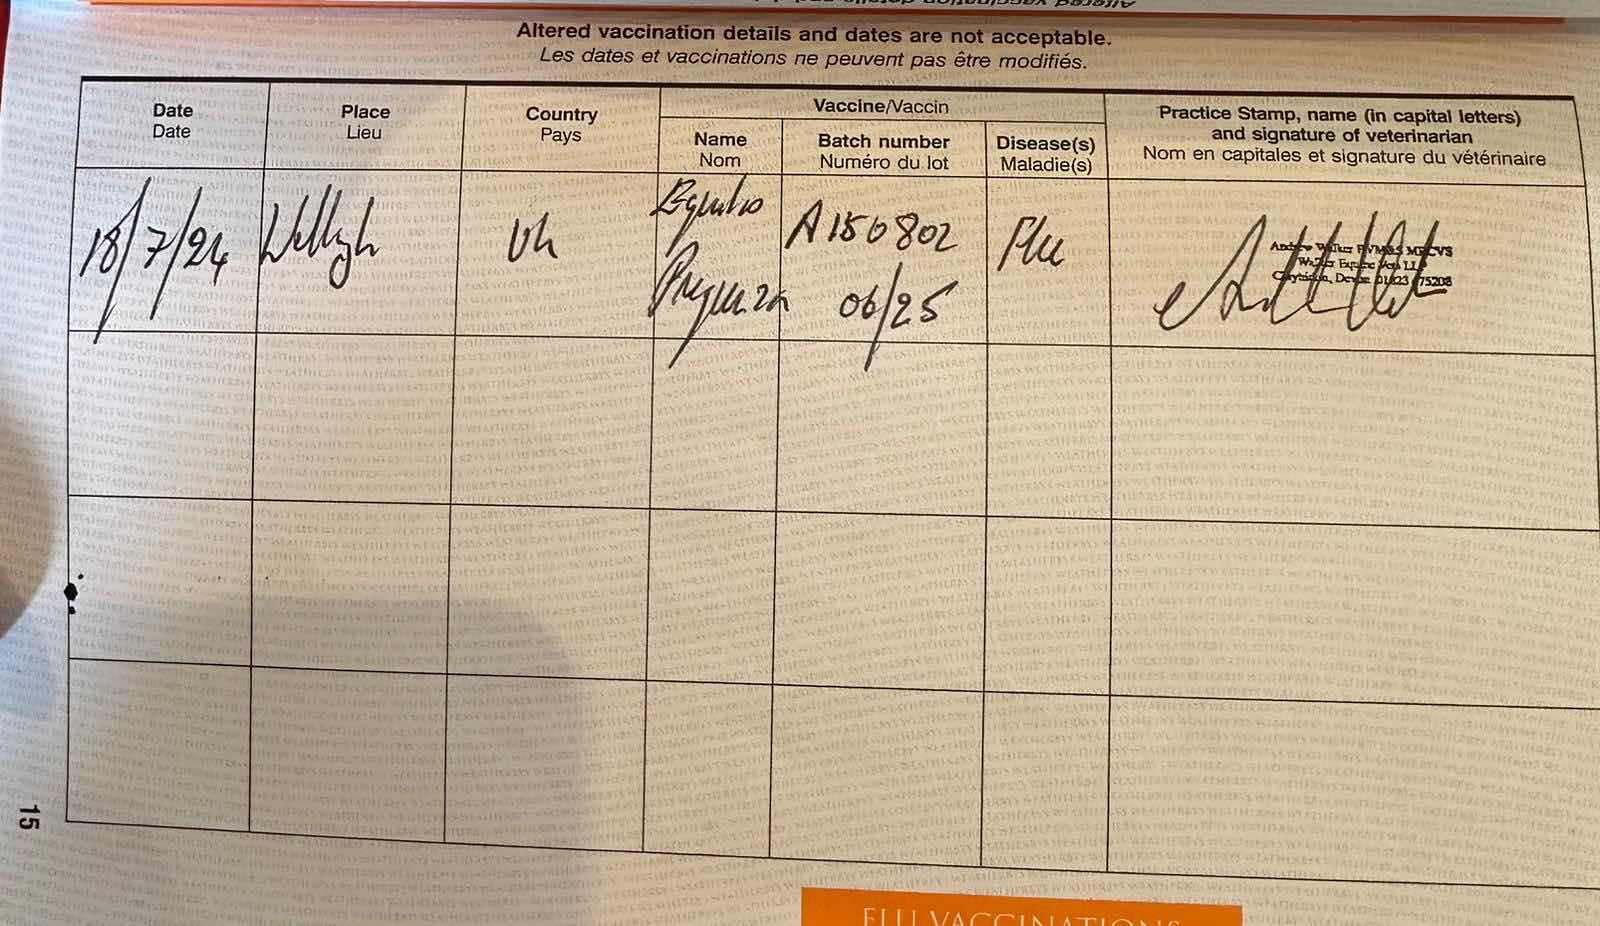 Altered vaccination details and dates are not acceptable.
Les dates et vaccinations ne peuvent pas être modifiés.
Date
Date
Place
Lieu
Country
Pays
Vaccine/Vaccin
Name
Nom
Batch number
Numéro du lot
Disease(s)
Maladie(s)
Practice Stamp, name (in capital letters)
and signature of veterinarian
Nom en capitales et signature du vétérinaire
18/7/24
Uk
A150802
06/25
Flu
Andrew Walker MRCVS
Walker Equine Vets
Devon
15
FLU VACCINATIONS